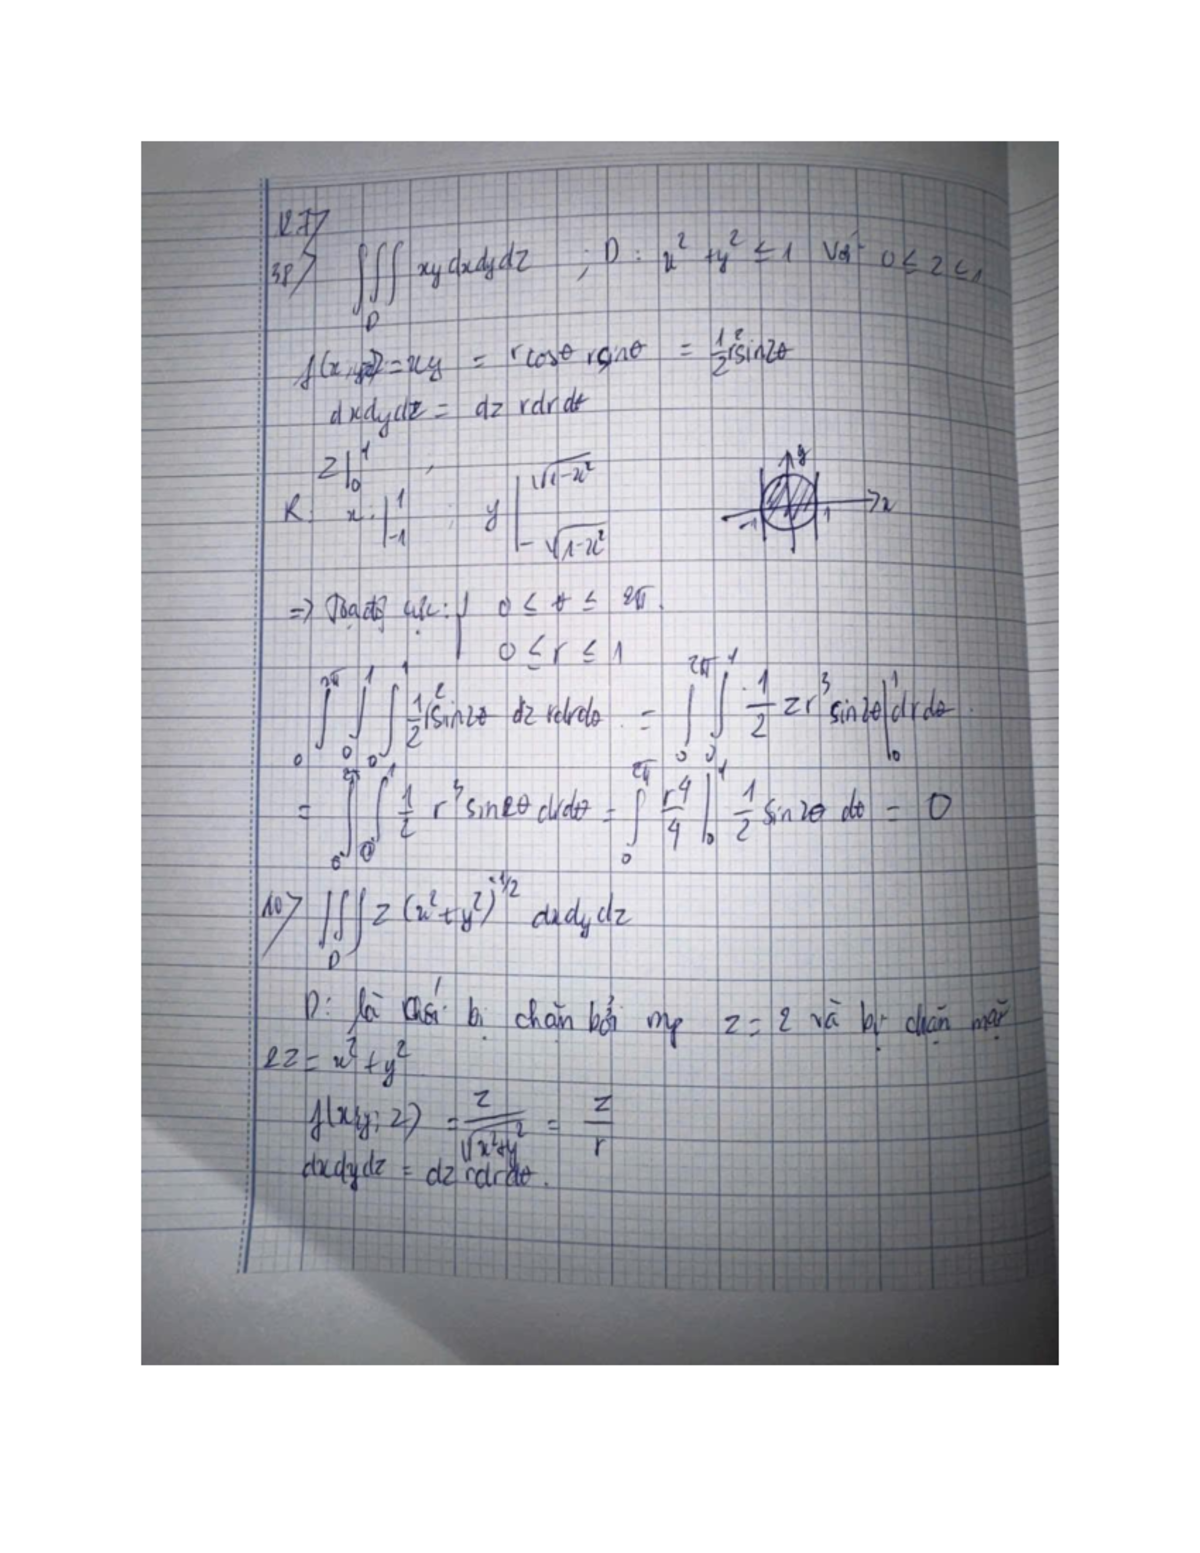 38> ∭_D xy dxdydz ; D : x² + y² ≤ 1 Với 0 ≤ z ≤ 1
f(x,y,z) = xy = rcosθ rsinθ = 1/2 r² sin2θ
dxdydz = dz rdrdθ
z|₀¹ ;
R: x |₋₁¹ ; y |_{-√(1-x²)}^{√(1-x²)}
y
x
-1 1
=> Toạ độ cực: { 0 ≤ θ ≤ 2π.
0 ≤ r ≤ 1
∫₀^{2π} ∫₀¹ ∫₀¹ 1/2 r² sin2θ dz rdrdθ = ∫₀^{2π} ∫₀¹ 1/2 zr³ sin2θ |₀¹ drdθ.
= ∫₀^{2π} ∫₀¹ 1/2 r³ sin2θ drdθ = ∫₀^{2π} r⁴/4 |₀¹ 1/2 sin2θ dθ = 0
10> ∭_D z (x² + y²)^{-1/2} dxdydz
D: là khối bị chặn bởi mp z = 2 và bị chặn mặt
2z = x² + y²
f(x; y; z) = z/√(x²+y²) = z/r
dxdydz = dz rdrdθ.